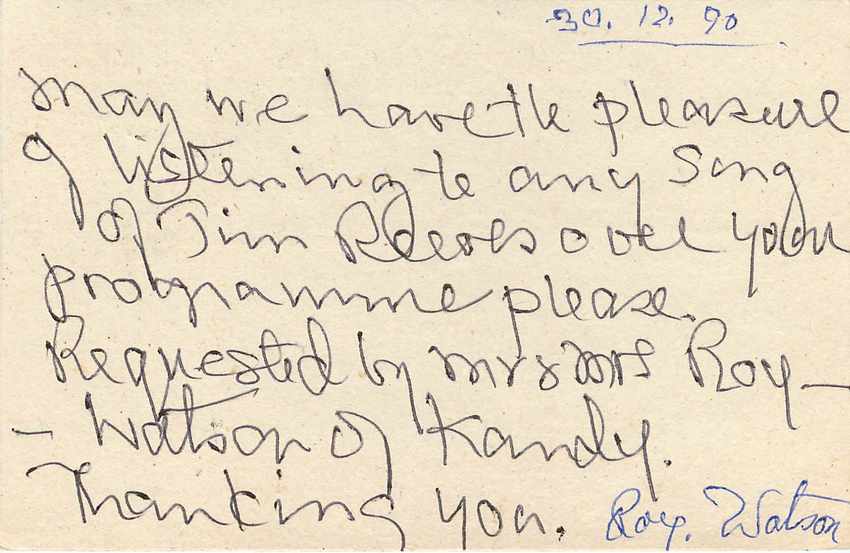 30. 12. 90
May we have the pleasure
of listening to any Song
of Jim Reeves over your
programme please.
Requested by Mr & Mrs Roy –
– Watson of Kandy.
Thanking you. Roy. Watson